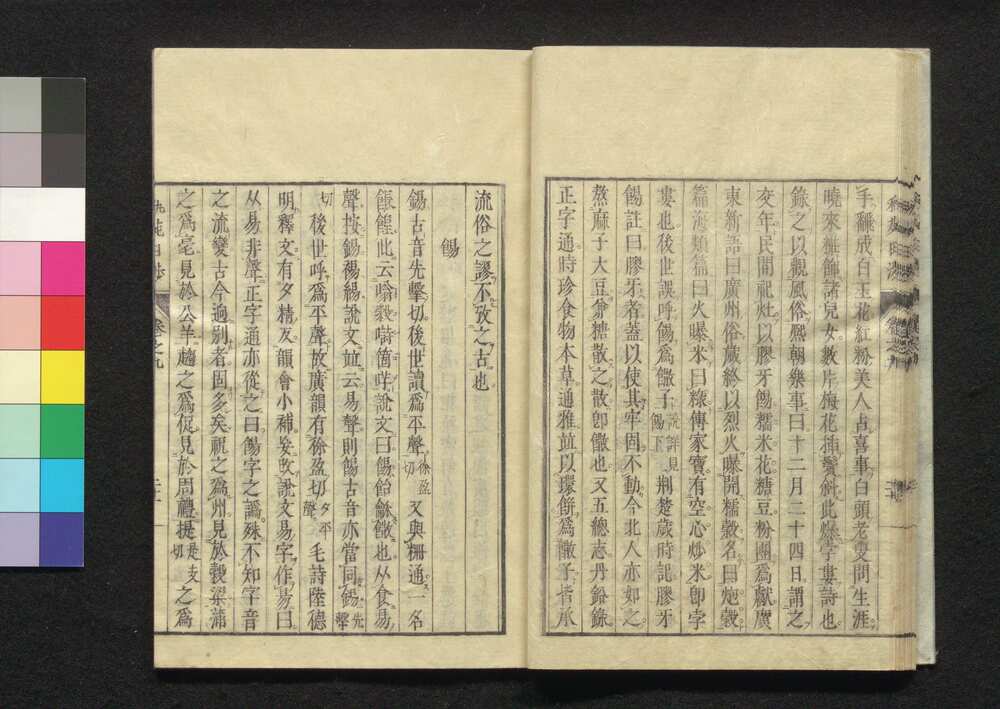 手翻成白玉花紅粉美人占喜事白頭老叟問生涯
曉來粧飾諸兒女數片梅花插鬢斜此爆孛婁詩也
錄之以觀風俗熈朝樂事曰十二月二十四日謂之
交年民間祀灶以膠牙餳糯米花糖豆粉團爲獻廣
東新語曰廣州俗歲終以烈火曝開糯穀名曰炮穀
篇海類篇曰火曝米曰糉傳家寶有空心炒米卽孛
婁也後世誤呼餳爲饊子説詳見餳下荆楚歲時記膠牙
餳註曰膠牙者蓋以使其牢固不動今北人亦如之
熬麻子大豆兼糖散之散卽饊也又五總志丹鉛錄
正字通時珍食物本草通雅並以環餠爲饊子皆承
流俗之謬不攷之古也
餳
餳古音先擊切後世讀爲平聲徐盈切又與糃通一名
餦餭此云
聲按錫裼緆說文並云易聲則餳古音亦當同錫先擊
切後世呼爲平聲故廣韻有徐盈切夕平聲毛詩陸德
明釋文有夕精反韻會小補妄改說文易字作昜曰
从易非聲正字通亦從之曰餳字之譌殊不知字音
之流變古今逈別者固多矣祝之爲州見於穀梁蒲
之爲亳見於公羊趨之爲促見於周禮提是支切之爲
卷之九